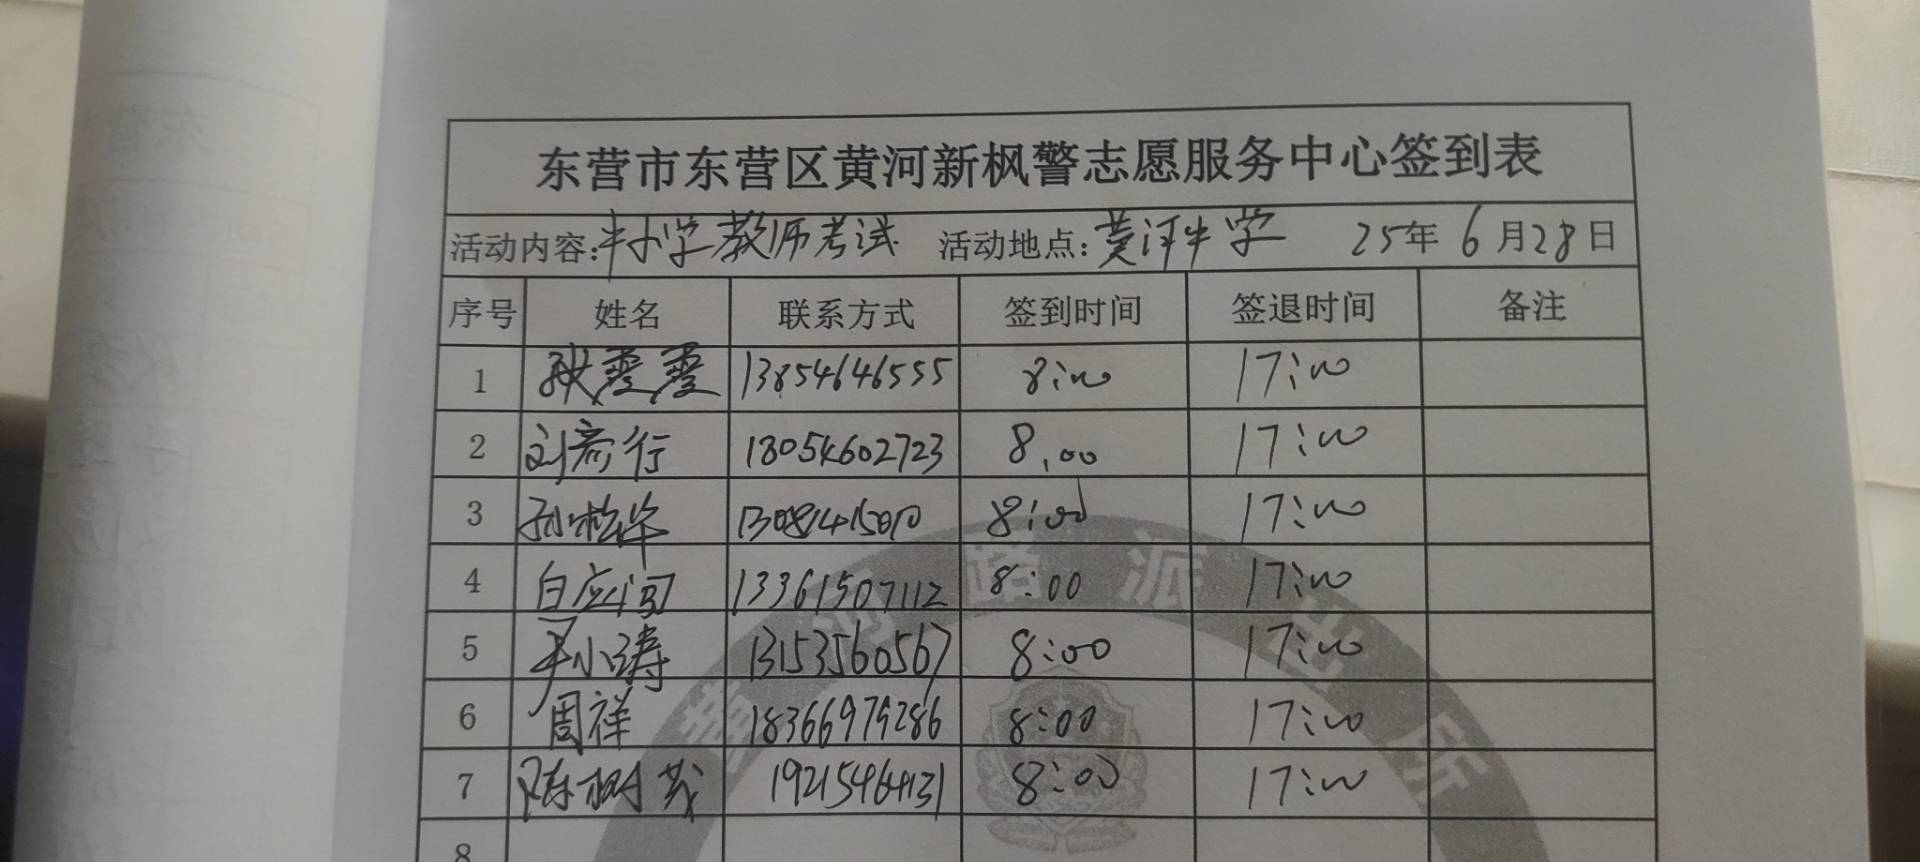 东营市东营区黄河新枫警志愿服务中心签到表
活动内容:中小学教师考试 活动地点:黄河中学 25年6月28日
序号 姓名 联系方式 签到时间 签退时间 备注
1 张霞霞 13854646555 8:00 17:00
2 刘彦行 18054602723 8:00 17:00
3 孙松华 8:00 17:00
4 白应河 13361507112 8:00 17:00
5 尹小涛 13153560567 8:00 17:00
6 周祥 18366979286 8:00 17:00
7 陈树茂 19215464131 8:00 17:00
8
黄河路派出所
东营